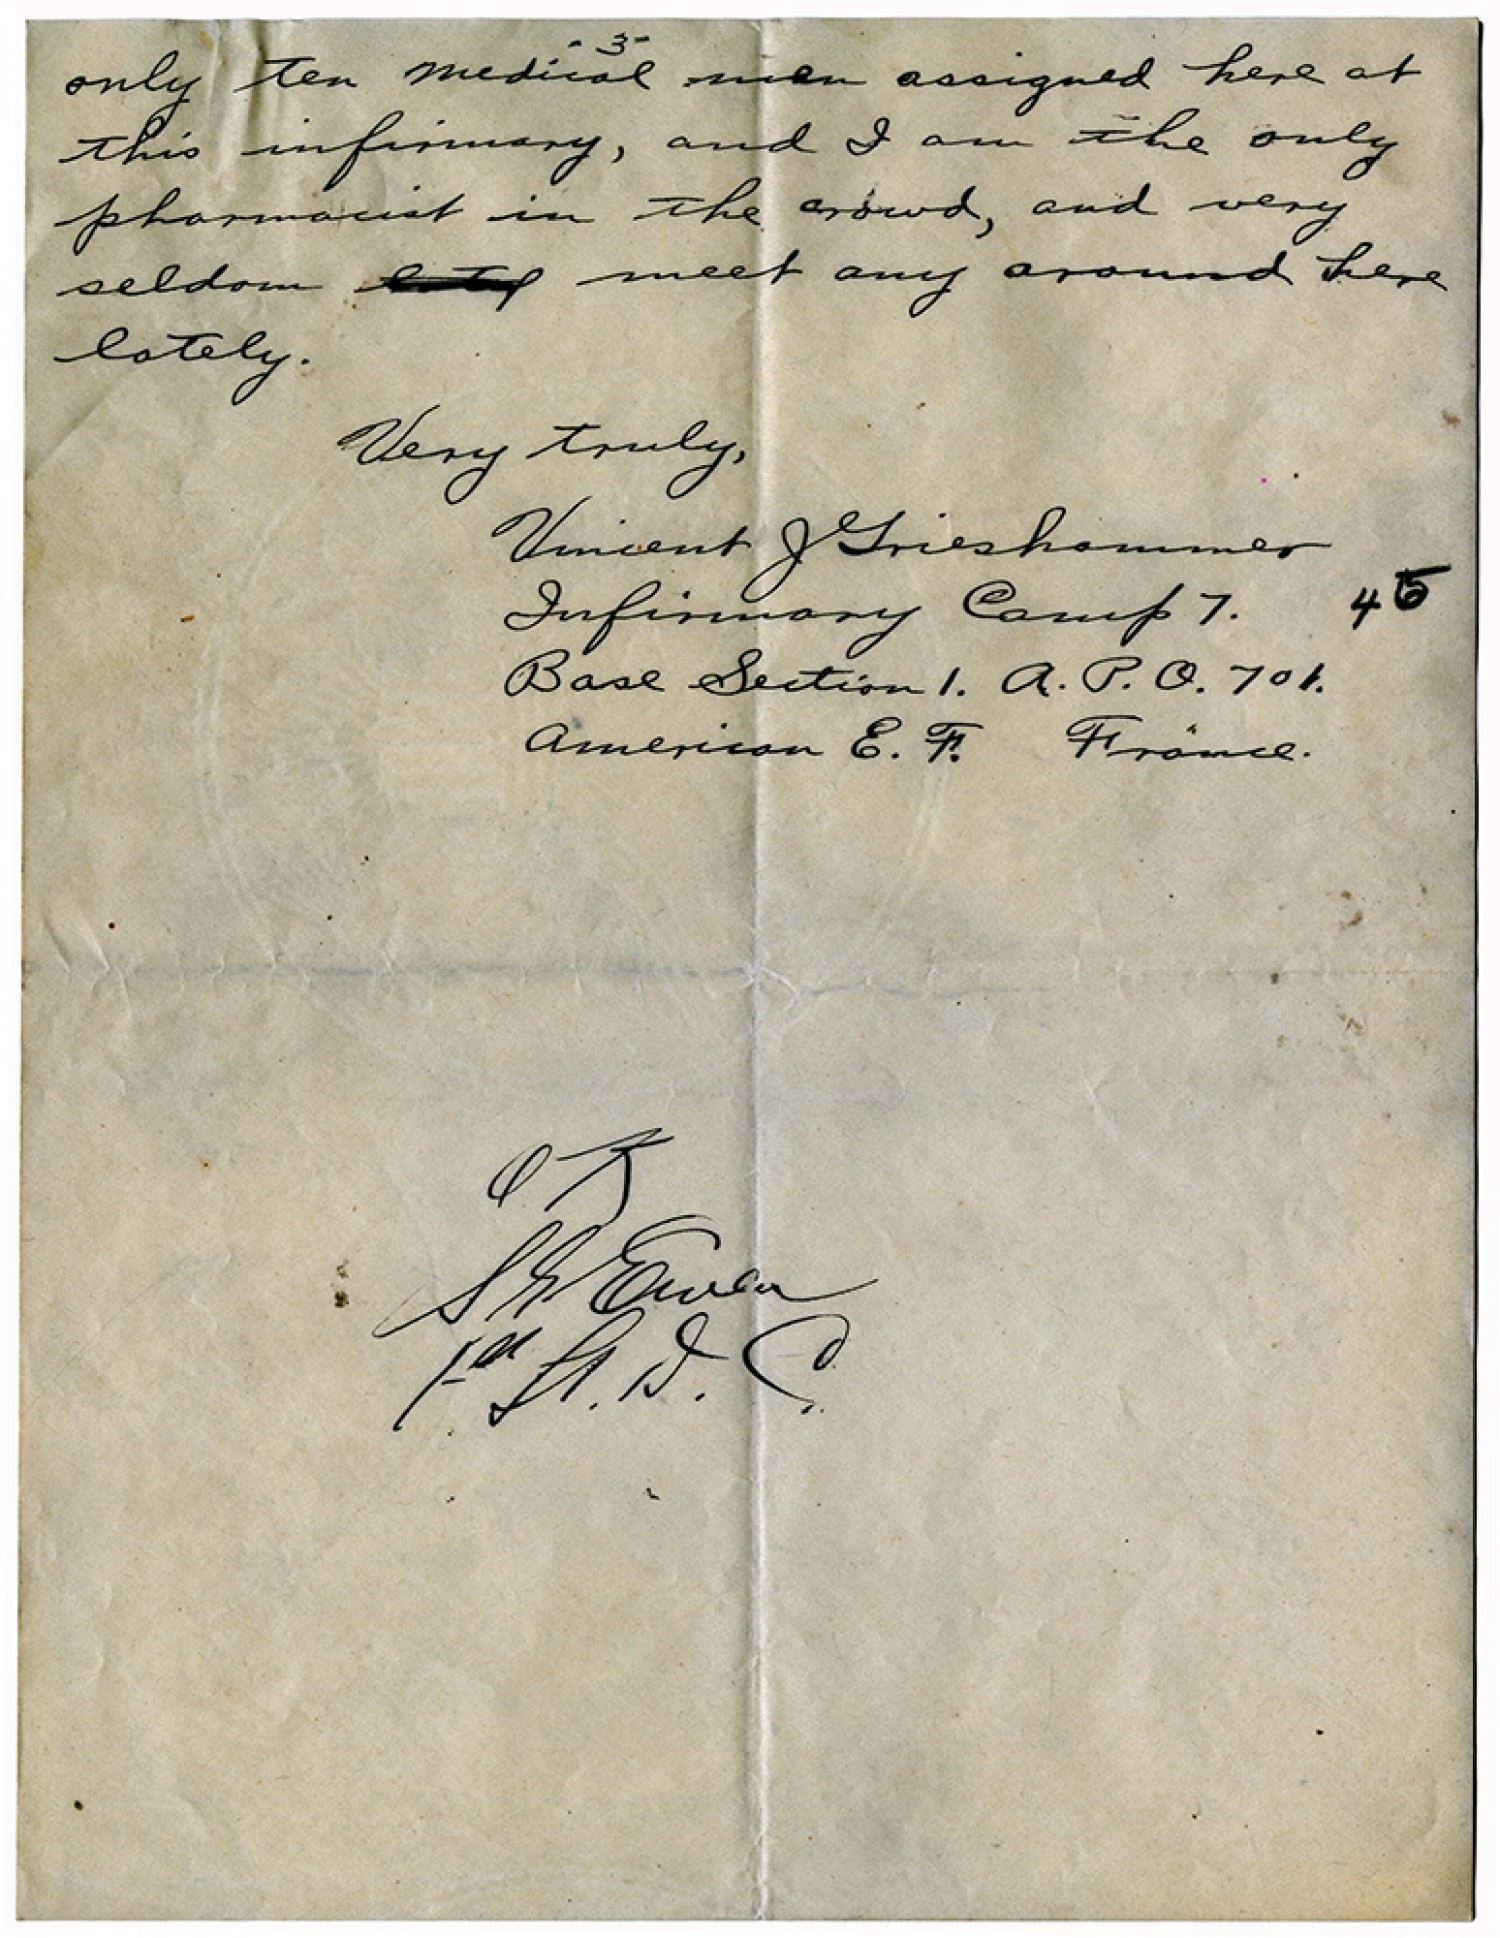 -3-
only ten medical men assigned here at
this infirmary, and I am the only
pharmacist in the crowd, and very
seldom meet any around here
lately.
Very truly,
Vincent J Grieshammer
Infirmary Camp 7. 45
Base Section 1. A. P. O. 701.
American E. F. France.
OK
Lt. D. C.